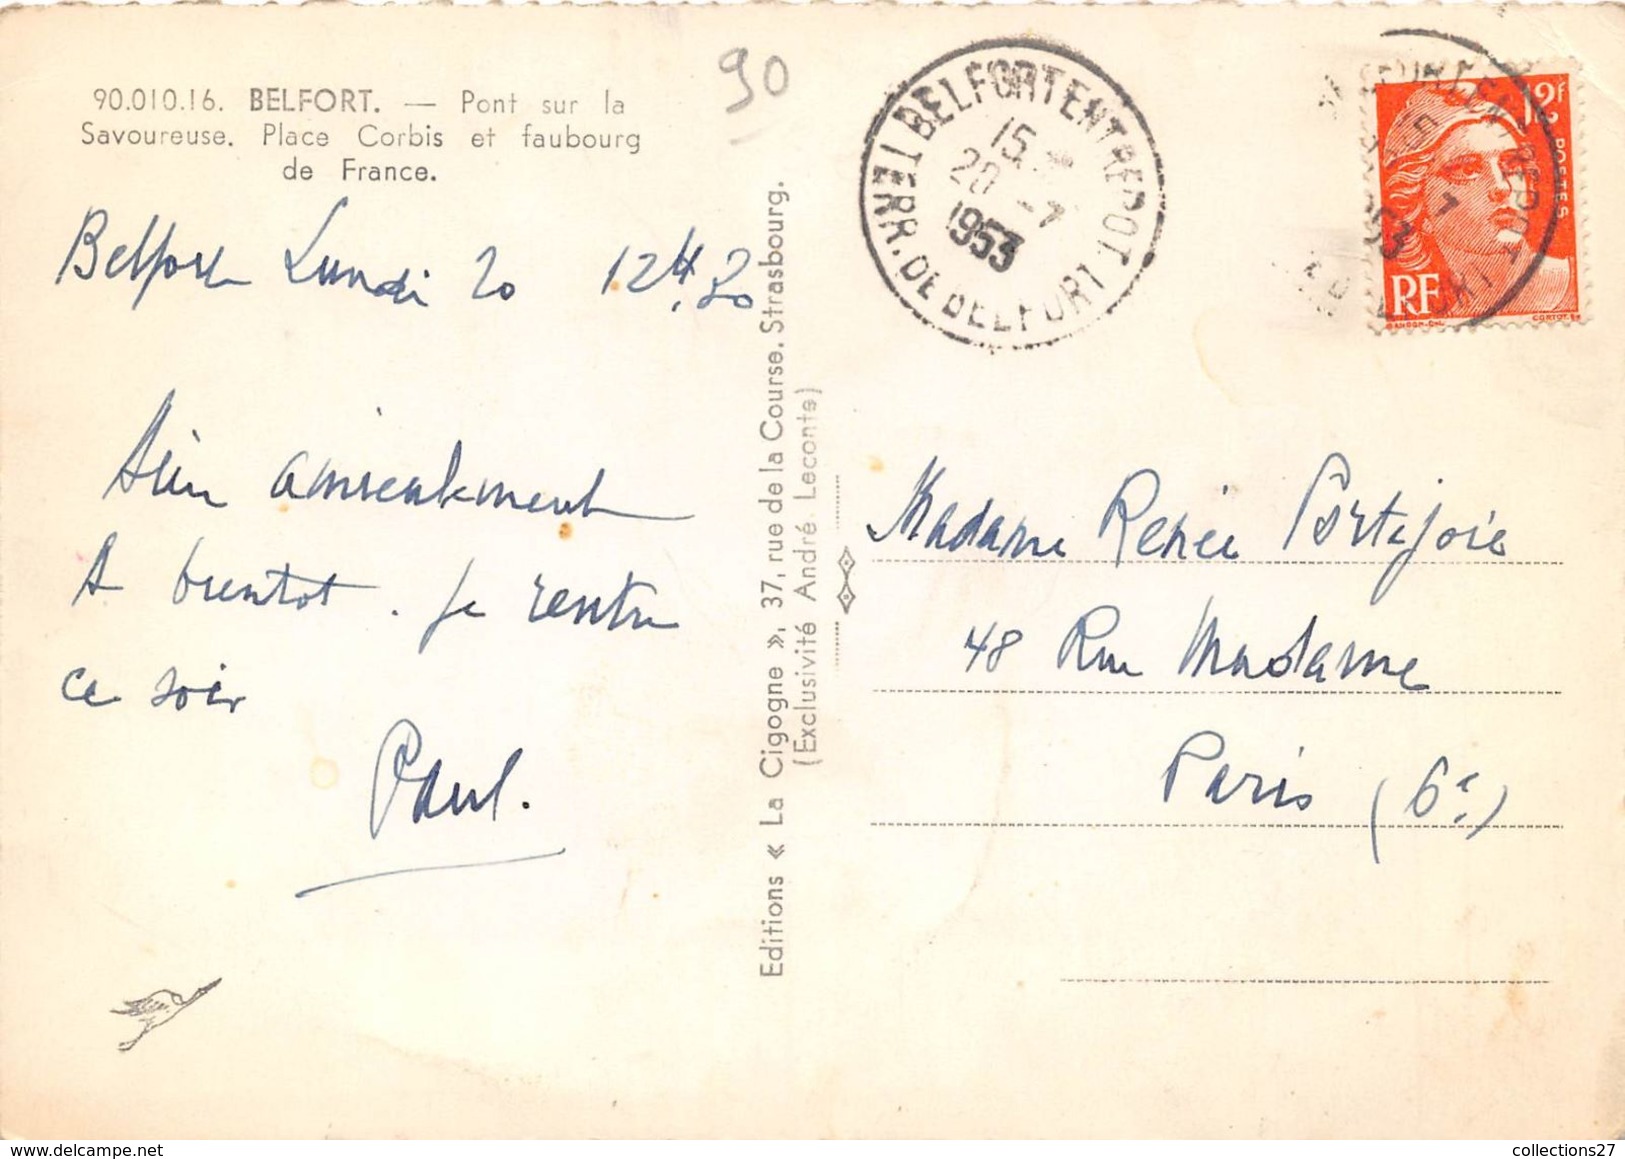 90.010.16. BELFORT. — Pont sur la
Savoureuse. Place Corbis et faubourg
de France.
90
Belfort Lundi 20 12H.30
Bien amicalement
A bientot. Je rentre
ce soir
Paul.
Editions « La Cigogne », 37, rue de la Course, Strasbourg.
(Exclusivité André Leconte)
BELFORT ENTREPOT
TERR. DE BELFORT
15
20 -7
1953
12f
POSTES
RF
GANDON-DEL
CORTOT.SC
Madame Renée Portejoie
48 Rue Madame
Paris (6e)
collections27